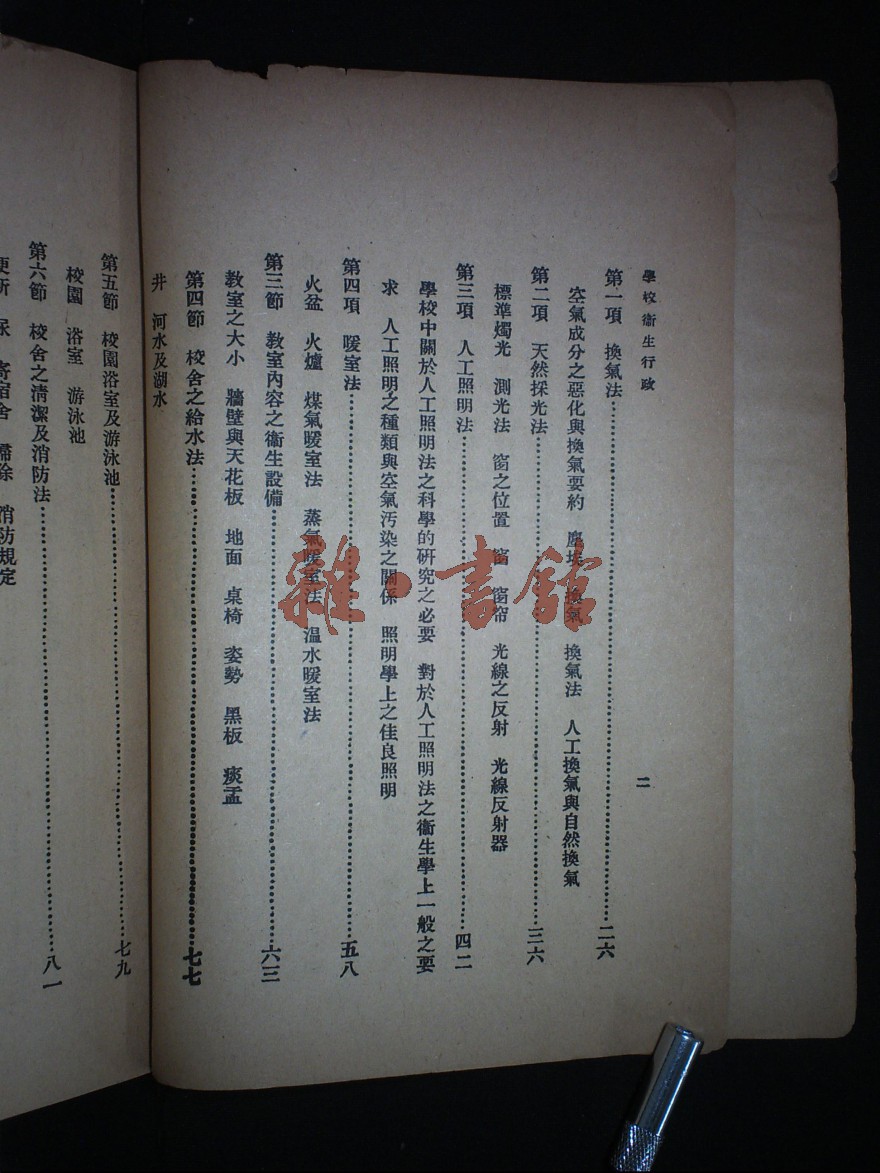 學校衞生行政
二
第一項 換氣法……二六
空氣成分之惡化與換氣要約 塵埃 換氣 換氣法 人工換氣與自然換氣
第二項 天然採光法……三六
標準燭光 測光法 窗之位置 窗 窗帘 光線之反射 光線反射器
第三項 人工照明法……四二
學校中關於人工照明法之科學的硏究之必要 對於人工照明法之衞生學上一般之要
求 人工照明之種類與空氣汚染之關係 照明學上之佳良照明
第四項 暖室法……五八
火盆 火爐 煤氣暖室法 蒸氣暖室法 溫水暖室法
第三節 敎室內容之衞生設備……六三
敎室之大小 牆壁與天花板 地面 桌椅 姿勢 黑板 痰盂
第四節 校舍之給水法……七七
井 河水及湖水
第五節 校園浴室及游泳池……七九
校園 浴室 游泳池
第六節 校舍之淸潔及消防法……八一
寄宿舍 掃除 消防規定
雜·書館